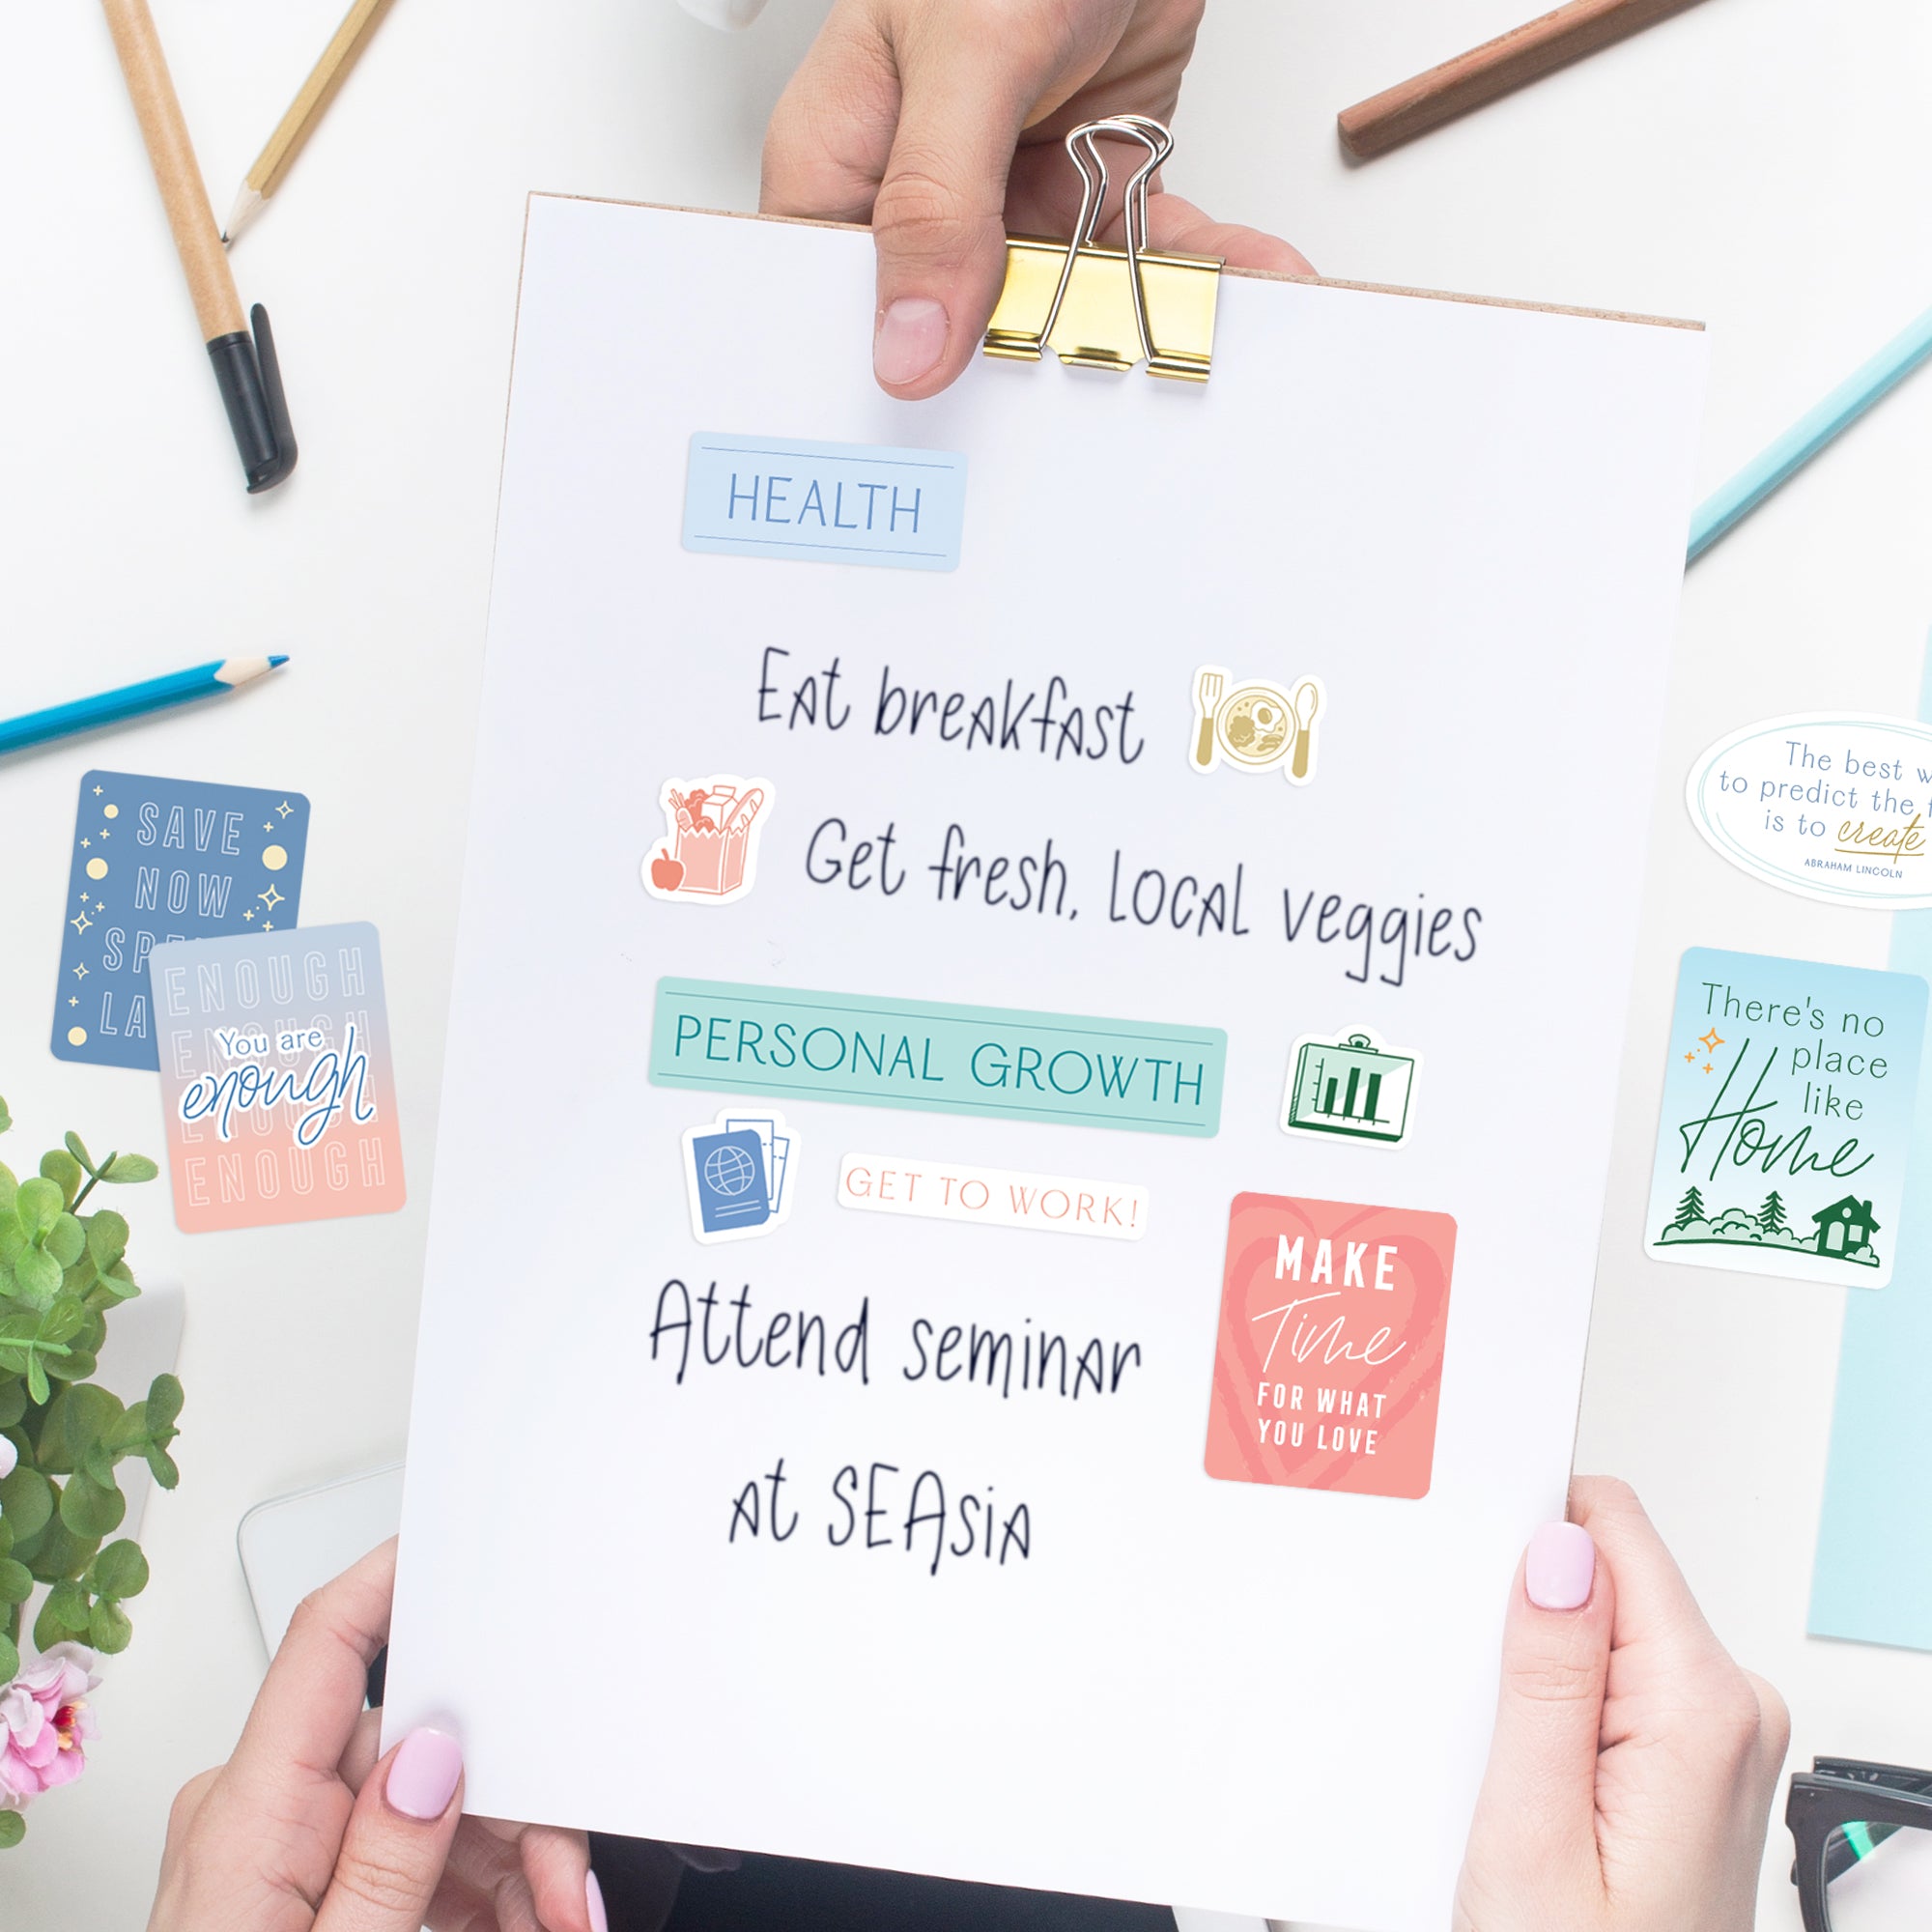 HEALTH
Eat breakfast
Get fresh, local veggies
PERSONAL GROWTH
GET TO WORK!
MAKE
Time
FOR WHAT
YOU LOVE
Attend seminar
at SEAsia
SAVE
NOW
SP
LA
ENOUGH
You are
enough
ENOUGH
The best
to predict the
is to create
ABRAHAM LINCOLN
There's no
place
like
Home